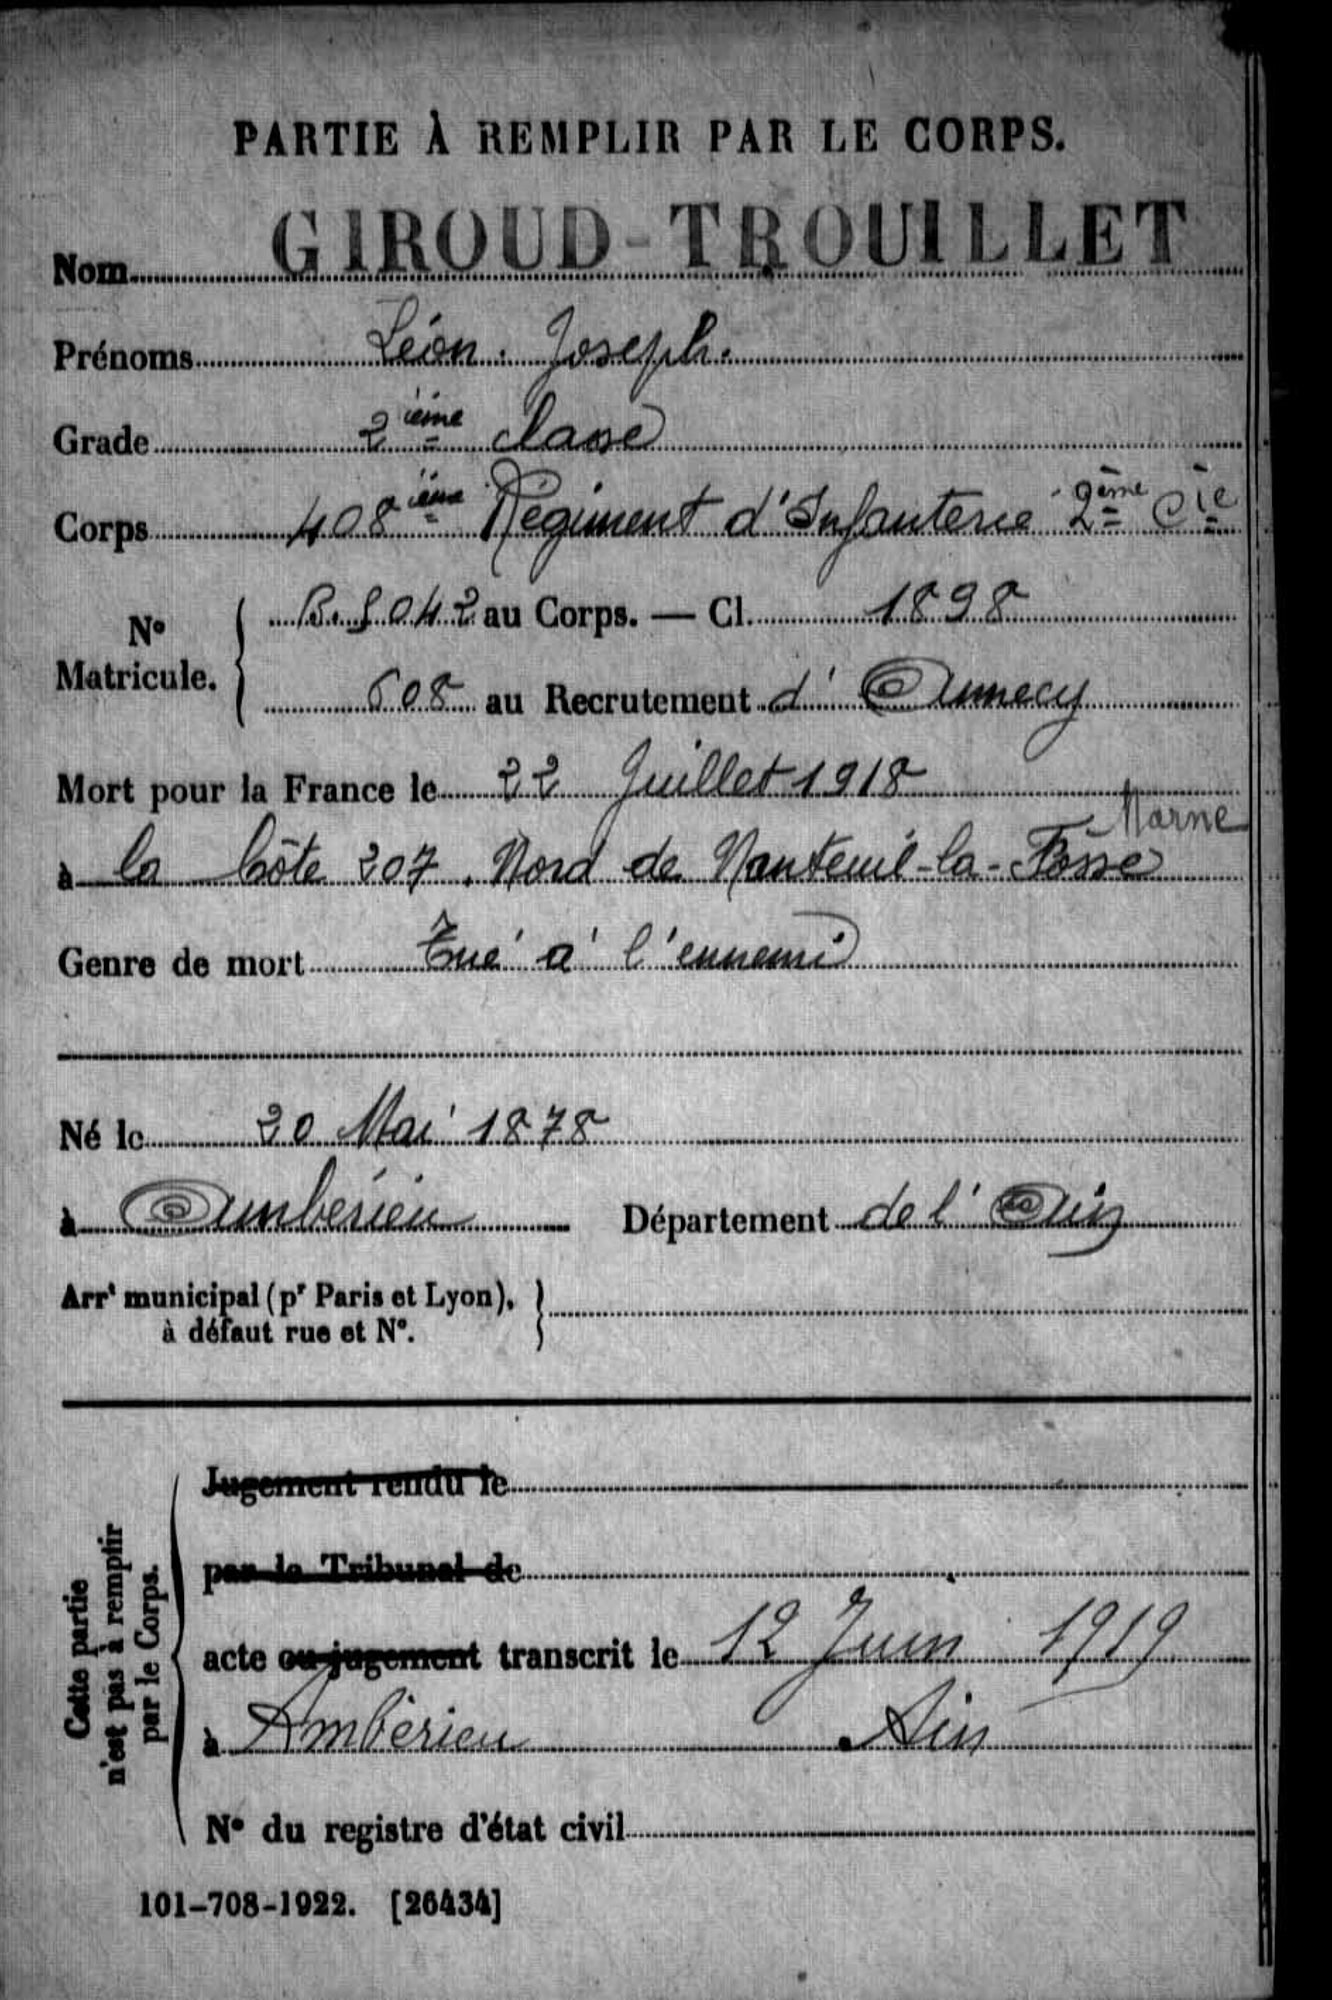 PARTIE À REMPLIR PAR LE CORPS.
Nom GIROUD-TROUILLET
Prénoms Léon. Joseph.
Grade 2ième classe
Corps 408ième Régiment d'Infanterie 2ème Cie
N° Matricule. { au Corps. — Cl. 1898
608 au Recrutement d'Annecy
Mort pour la France le 22 Juillet 1918
Marne
à la Côte 207. Nord de Nanteuil-la-Fosse
Genre de mort Tué à l'ennemi
Né le 20 Mai 1878
à Ambérieu Département de l'Ain
Arrt municipal (pr Paris et Lyon), }
à défaut rue et N°.
Cette partie
n'est pas à remplir
par le Corps.
Jugement rendu le
par le Tribunal de
acte ou jugement transcrit le 12 Juin 1919
à Ambérieu Ain
N° du registre d'état civil
101-708-1922. [26434]